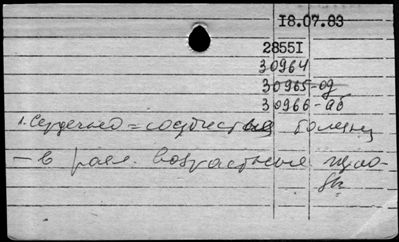 18.07.83
28551
30964
30965-од
30966-аб
1. Сердечно=сосудистые болезни
— в разл. возрастные перио-
ды